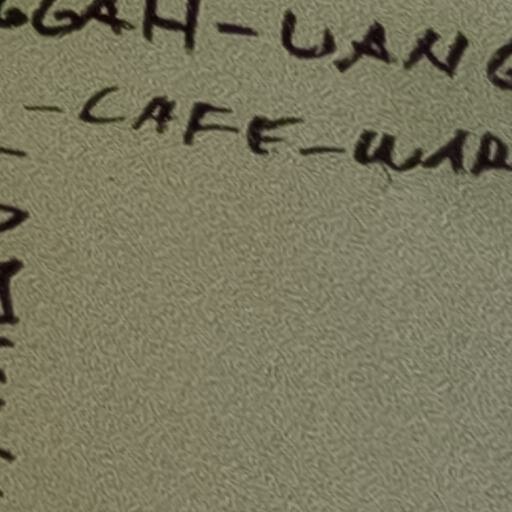 GGAH-UANG
-CAFE-WAR